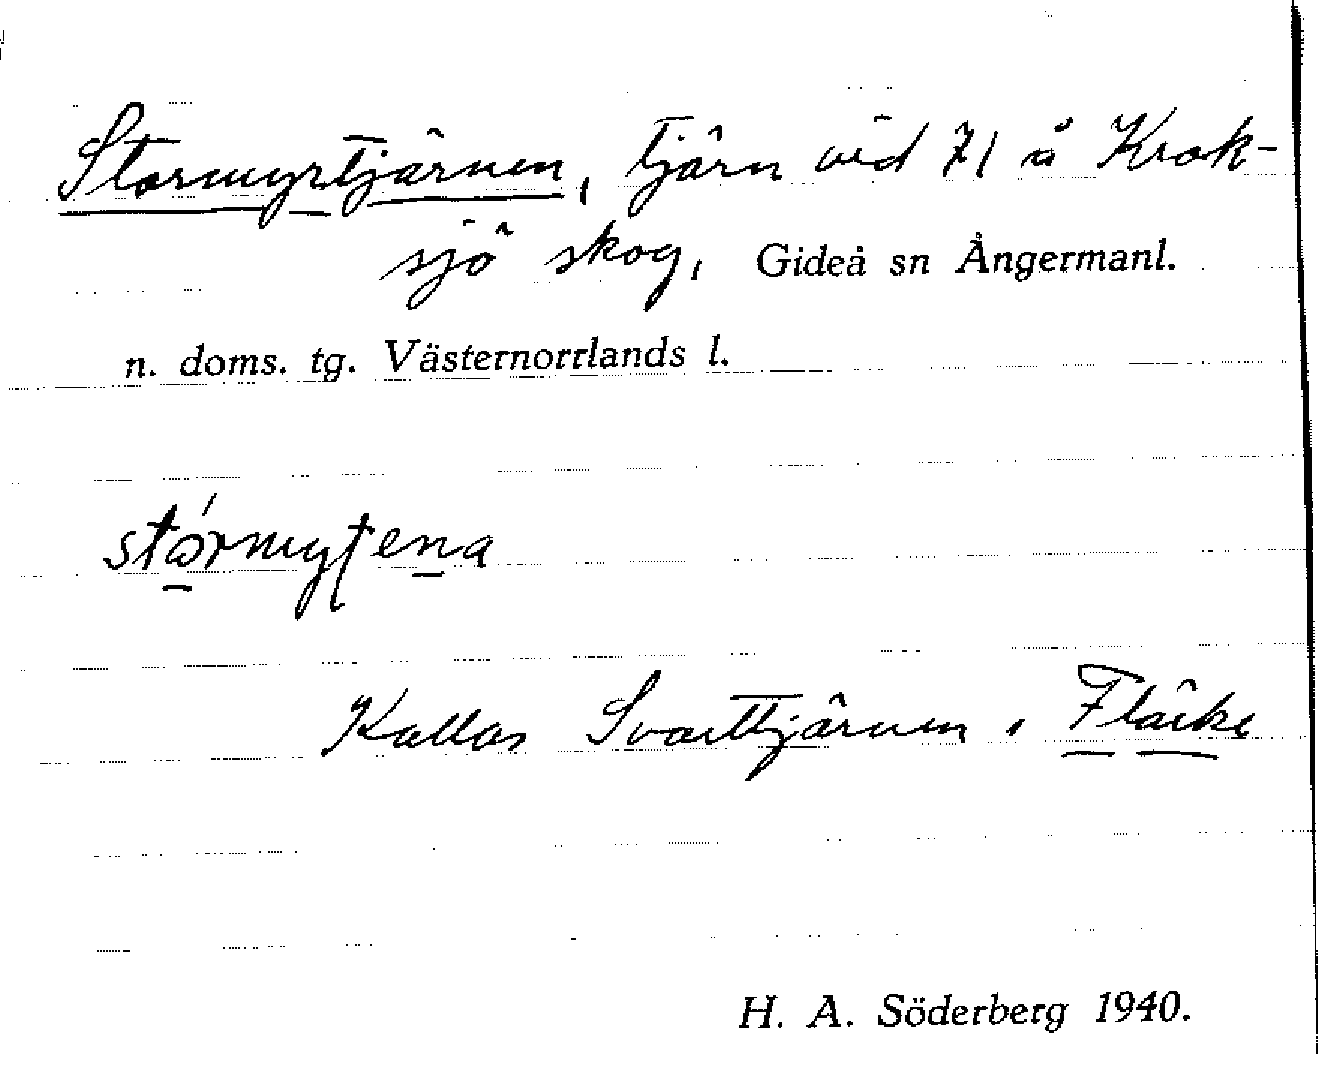 Stormyrtjärnen, tjärn vid 71 å Krok-
sjö skog, Gideå sn Ångermanl.
n. doms. tg. Västernorrlands l.
Kallas Svarttjärnen i Fläcke
H. A. Söderberg 1940.